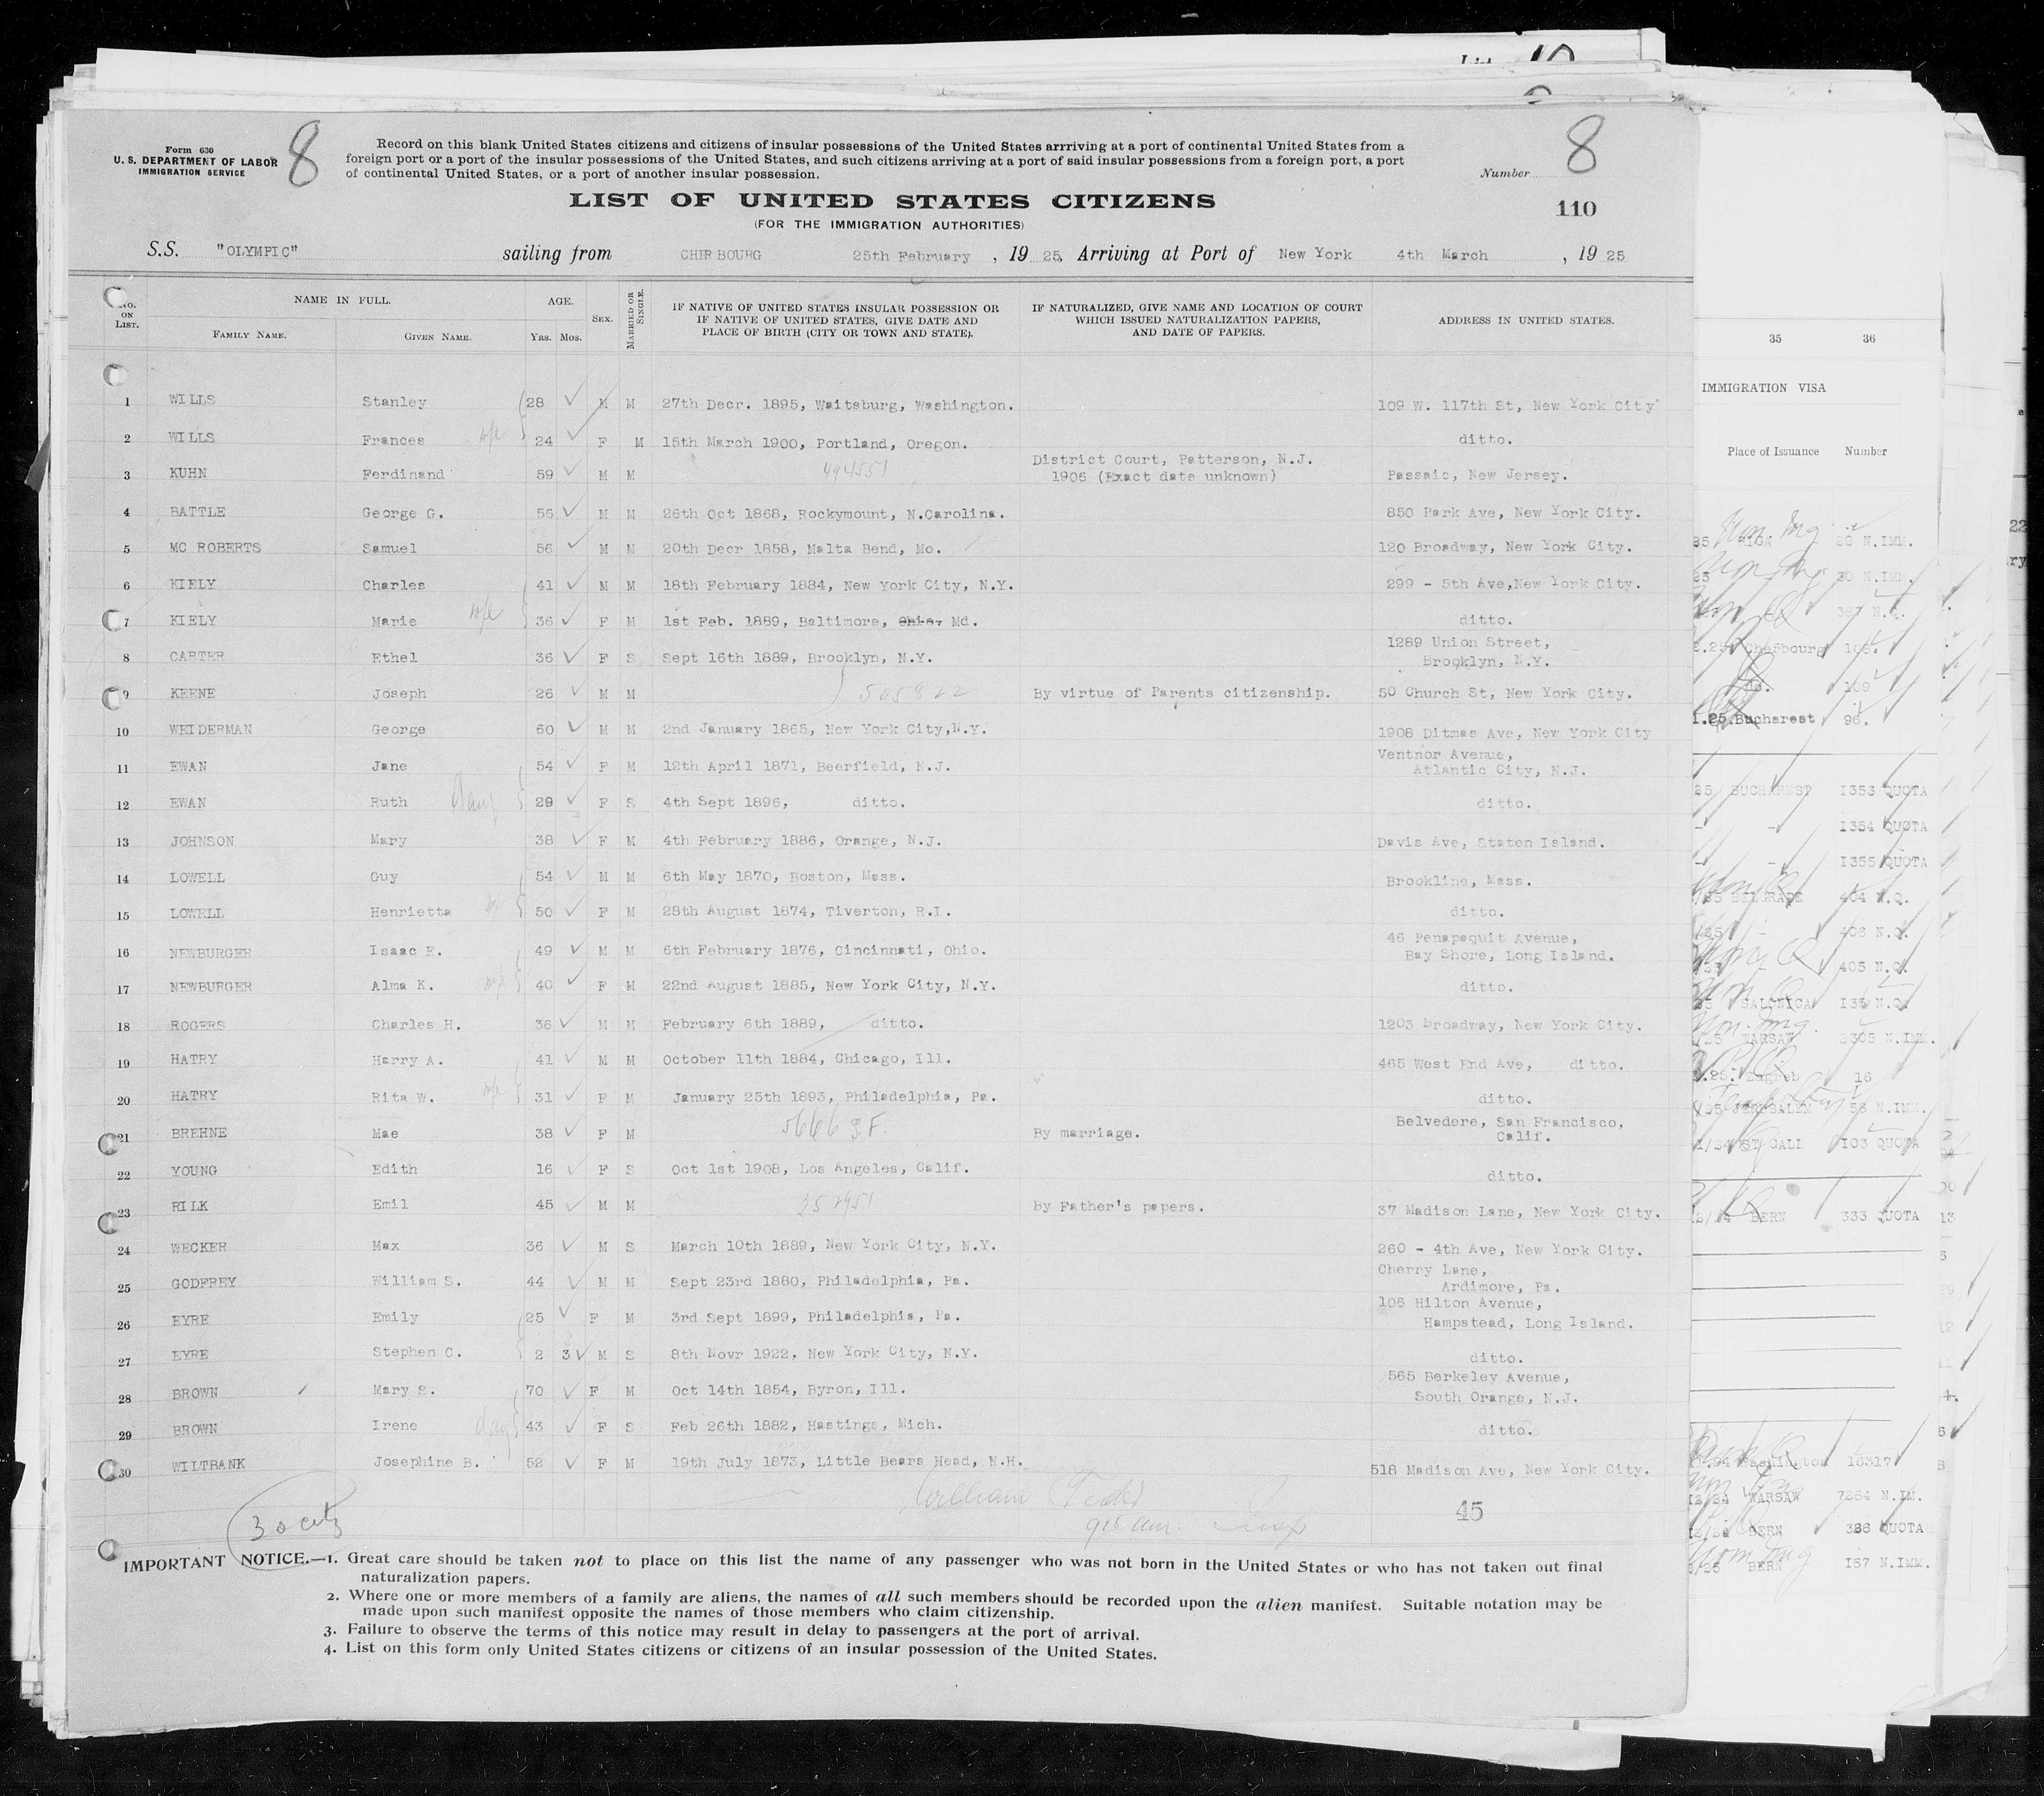 Form 630
U. S. DEPARTMENT OF LABOR
IMMIGRATION SERVICE
8
Record on this blank United States citizens and citizens of insular possessions of the United States arrriving at a port of continental United States from a
foreign port or a port of the insular possessions of the United States, and such citizens arriving at a port of said insular possessions from a foreign port, a port
of continental United States, or a port of another insular possession.
Number 8
LIST OF UNITED STATES CITIZENS
110
(FOR THE IMMIGRATION AUTHORITIES)
S.S. "OLYMPIC" sailing from CHERBOURG 25th February, 19 25, Arriving at Port of New York 4th March, 19 25
No. ON LIST. NAME IN FULL. FAMILY NAME. GIVEN NAME. AGE. Yrs. Mos. SEX. MARRIED OR SINGLE. IF NATIVE OF UNITED STATES INSULAR POSSESSION OR IF NATIVE OF UNITED STATES, GIVE DATE AND PLACE OF BIRTH (CITY OR TOWN AND STATE). IF NATURALIZED, GIVE NAME AND LOCATION OF COURT WHICH ISSUED NATURALIZATION PAPERS, AND DATE OF PAPERS. ADDRESS IN UNITED STATES.
1 WILLS Stanley 28 M M 27th Decr. 1895, Waitsburg, Washington. 109 W. 117th St, New York City
2 WILLS Frances w/e 24 F M 15th March 1900, Portland, Oregon. ditto.
3 KUHN Ferdinand 59 M M 494551 District Court, Patterson, N.J. 1906 (Exact date unknown) Passaic, New Jersey.
4 BATTLE George G. 56 M M 26th Oct 1868, Rockymount, N.Carolina. 850 Park Ave, New York City.
5 MC ROBERTS Samuel 56 M M 20th Decr 1858, Malta Bend, Mo. 120 Broadway, New York City.
6 KIELY Charles 41 M M 18th February 1884, New York City, N.Y. 299 - 5th Ave,New York City.
7 KIELY Marie w/e 36 F M 1st Feb. 1889, Baltimore, Ohio, Md. ditto.
8 CARTER Ethel 36 F S Sept 16th 1889, Brooklyn, N.Y. 1289 Union Street, Brooklyn, N.Y.
9 KEENE Joseph 26 M M 505822 By virtue of Parents citizenship. 50 Church St, New York City.
10 WEIDERMAN George 60 M M 2nd January 1865, New York City,N.Y. 1908 Ditmas Ave, New York City
11 EWAN Jane 54 F M 12th April 1871, Beerfield, N.J. Ventnor Avenue, Atlantic City, N.J.
12 EWAN Ruth 29 F S 4th Sept 1896, ditto. ditto.
13 JOHNSON Mary 38 F M 4th February 1886, Orange, N.J. Davis Ave, Staten Island.
14 LOWELL Guy 54 M M 6th May 1870, Boston, Mass. Brookline, Mass.
15 LOWELL Henrietta 50 F M 28th August 1874, Tiverton, R.I. ditto.
16 NEWBURGER Isaac E. 49 M M 6th February 1876, Cincinnati, Ohio. 46 Penapequit Avenue, Bay Shore, Long Island.
17 NEWBURGER Alma K. 40 F M 22nd August 1885, New York City, N.Y. ditto.
18 ROGERS Charles H. 36 M M February 6th 1889, ditto. 1203 Broadway, New York City.
19 HATRY Harry A. 41 M M October 11th 1884, Chicago, Ill. 465 West End Ave, ditto.
20 HATRY Rita W. w/e 31 F M January 25th 1893, Philadelphia, Pa. ditto.
21 BREHNE Mae 38 F M By marriage. Belvedere, San Francisco, Calif.
22 YOUNG Edith 16 F S Oct 1st 1908, Los Angeles, Calif. ditto.
23 RILK Emil 45 M M By Father's papers. 37 Madison Lane, New York City.
24 WECKER Max 36 M S March 10th 1889, New York City, N.Y. 260 - 4th Ave, New York City.
25 GODFREY William S. 44 M M Sept 23rd 1880, Philadelphia, Pa. Cherry Lane, Ardimore, Pa.
26 EYRE Emily 25 F M 3rd Sept 1899, Philadelphia, Pa. 106 Hilton Avenue, Hampstead, Long Island.
27 EYRE Stephen C. 2 3 M S 8th Novr 1922, New York City, N.Y. ditto.
28 BROWN Mary S. 70 F M Oct 14th 1854, Byron, Ill. 565 Berkeley Avenue, South Orange, N.J.
29 BROWN Irene 43 F S Feb 26th 1882, Hastings, Mich. ditto.
30 WILTBANK Josephine B. 52 F M 19th July 1873, Little Bears Head, N.H. 518 Madison Ave, New York City.
William
45
IMPORTANT NOTICE.—1. Great care should be taken not to place on this list the name of any passenger who was not born in the United States or who has not taken out final
naturalization papers.
2. Where one or more members of a family are aliens, the names of all such members should be recorded upon the alien manifest. Suitable notation may be
made upon such manifest opposite the names of those members who claim citizenship.
3. Failure to observe the terms of this notice may result in delay to passengers at the port of arrival.
4. List on this form only United States citizens or citizens of an insular possession of the United States.
35 36
IMMIGRATION VISA
Place of Issuance Number
RIGA 29 N.IMM.
30 N.IMM.
367 N.Q.
Cherbourg 106.
do. 109
Bucharest 96.
BUCHAREST 1353 QUOTA
- - 1354 QUOTA
- - 1355 QUOTA
BELGRADE 404 N.Q.
406 N.Q.
405 N.Q.
SALONICA 136 N.Q.
WARSAW 2305 N.IMM.
Zagreb 16
JERUSALEM 56 N.IMM.
ST GALL 103 QUOTA
BERN 333 QUOTA
Washington 16317
WARSAW 7264 N.IM.
BERN 386 QUOTA
BERN 167 N.IMM.